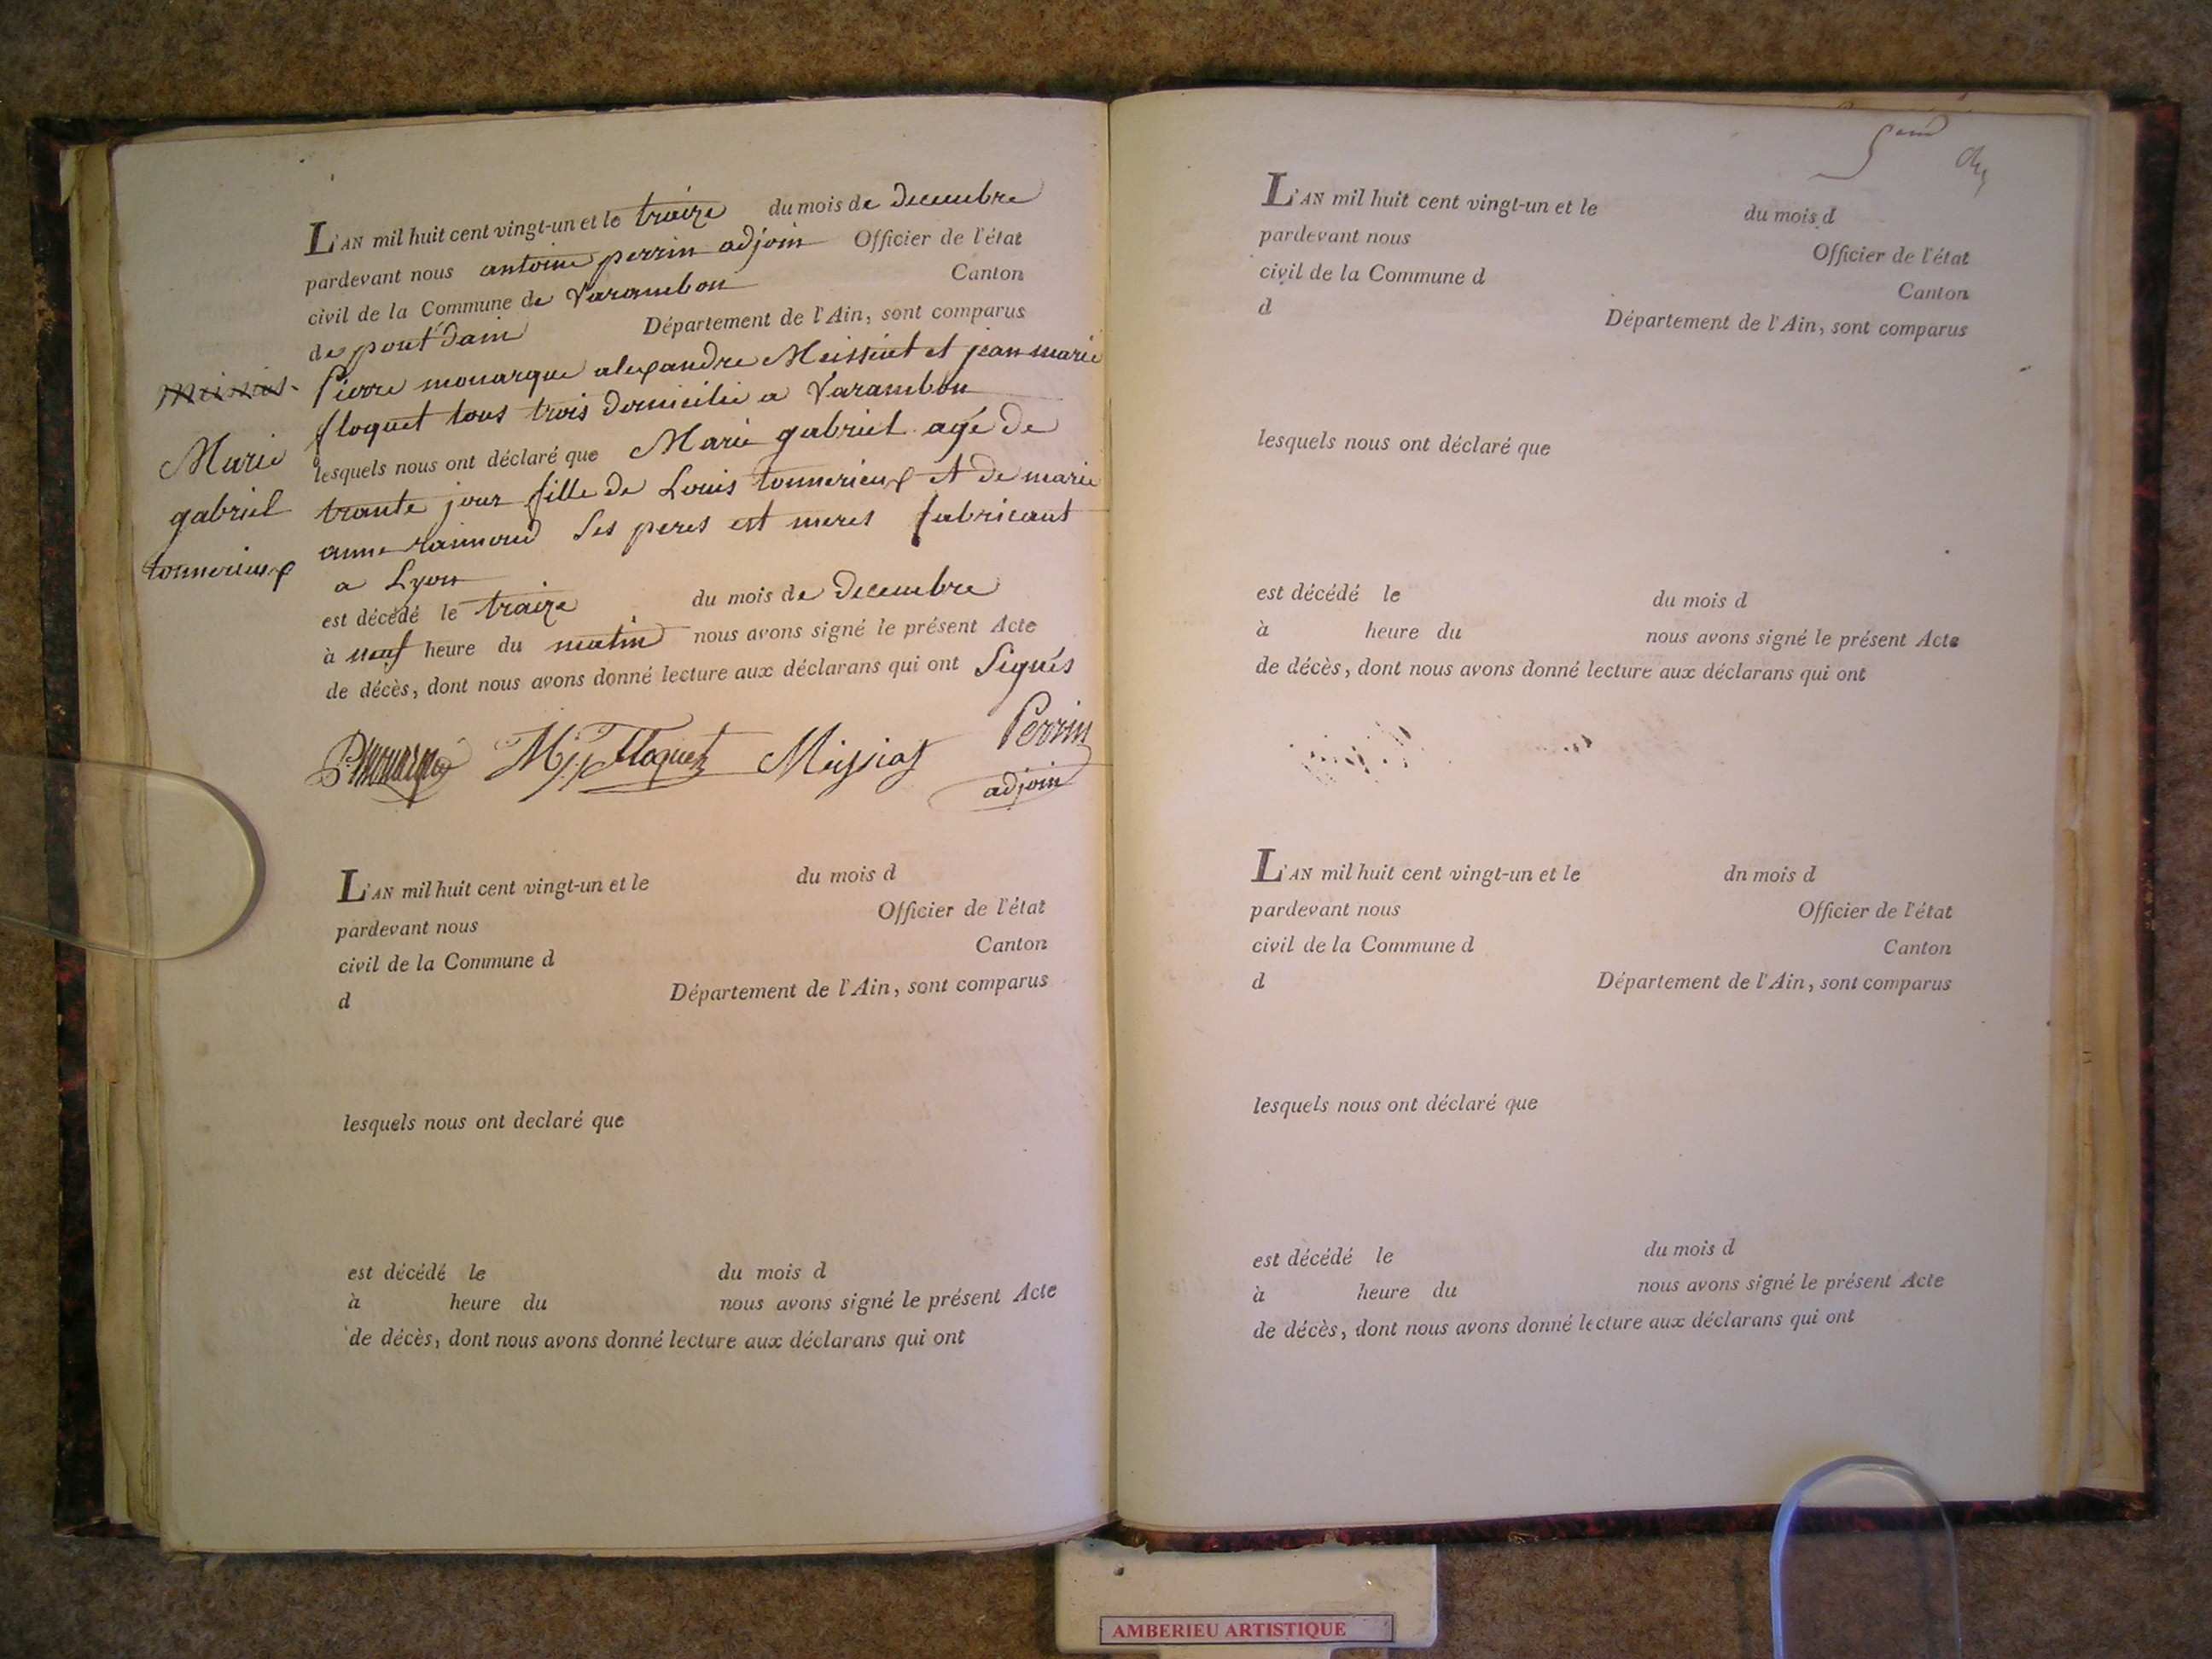 L'AN mil huit cent vingt-un et le traize du mois de decembre
pardevant nous antoine perrin adjoin Officier de l'état
civil de la Commune de Varambon Canton
de pont dain Département de l'Ain, sont comparus
pierre monarque alexandre Meissiat et jean marie
floquet tous trois domicilie a Varambon
lesquels nous ont déclaré que Marie gabriel agé de
trante jour fille de Louis tonnerieux et de marie
anne raimond ses peres est meres fabricant
a Lyon
est décédé le traize du mois de decembre
à neuf heure du matin nous avons signé le présent Acte
de décès, dont nous avons donné lecture aux déclarans qui ont Signés
Marie
gabriel
tonnerieux
P monarque M floquet Missiat Perrin
adjoin
L'AN mil huit cent vingt-un et le du mois d
pardevant nous Officier de l'état
civil de la Commune d Canton
d Département de l'Ain, sont comparus
lesquels nous ont declaré que
est décédé le du mois d
à heure du nous avons signé le présent Acte
de décès, dont nous avons donné lecture aux déclarans qui ont
L'AN mil huit cent vingt-un et le du mois d
pardevant nous Officier de l'état
civil de la Commune d Canton
d Département de l'Ain, sont comparus
lesquels nous ont déclaré que
est décédé le du mois d
à heure du nous avons signé le présent Acte
de décès, dont nous avons donné lecture aux déclarans qui ont
L'AN mil huit cent vingt-un et le dn mois d
pardevant nous Officier de l'état
civil de la Commune d Canton
d Département de l'Ain, sont comparus
lesquels nous ont déclaré que
est décédé le du mois d
à heure du nous avons signé le présent Acte
de décès, dont nous avons donné lecture aux déclarans qui ont
AMBERIEU ARTISTIQUE